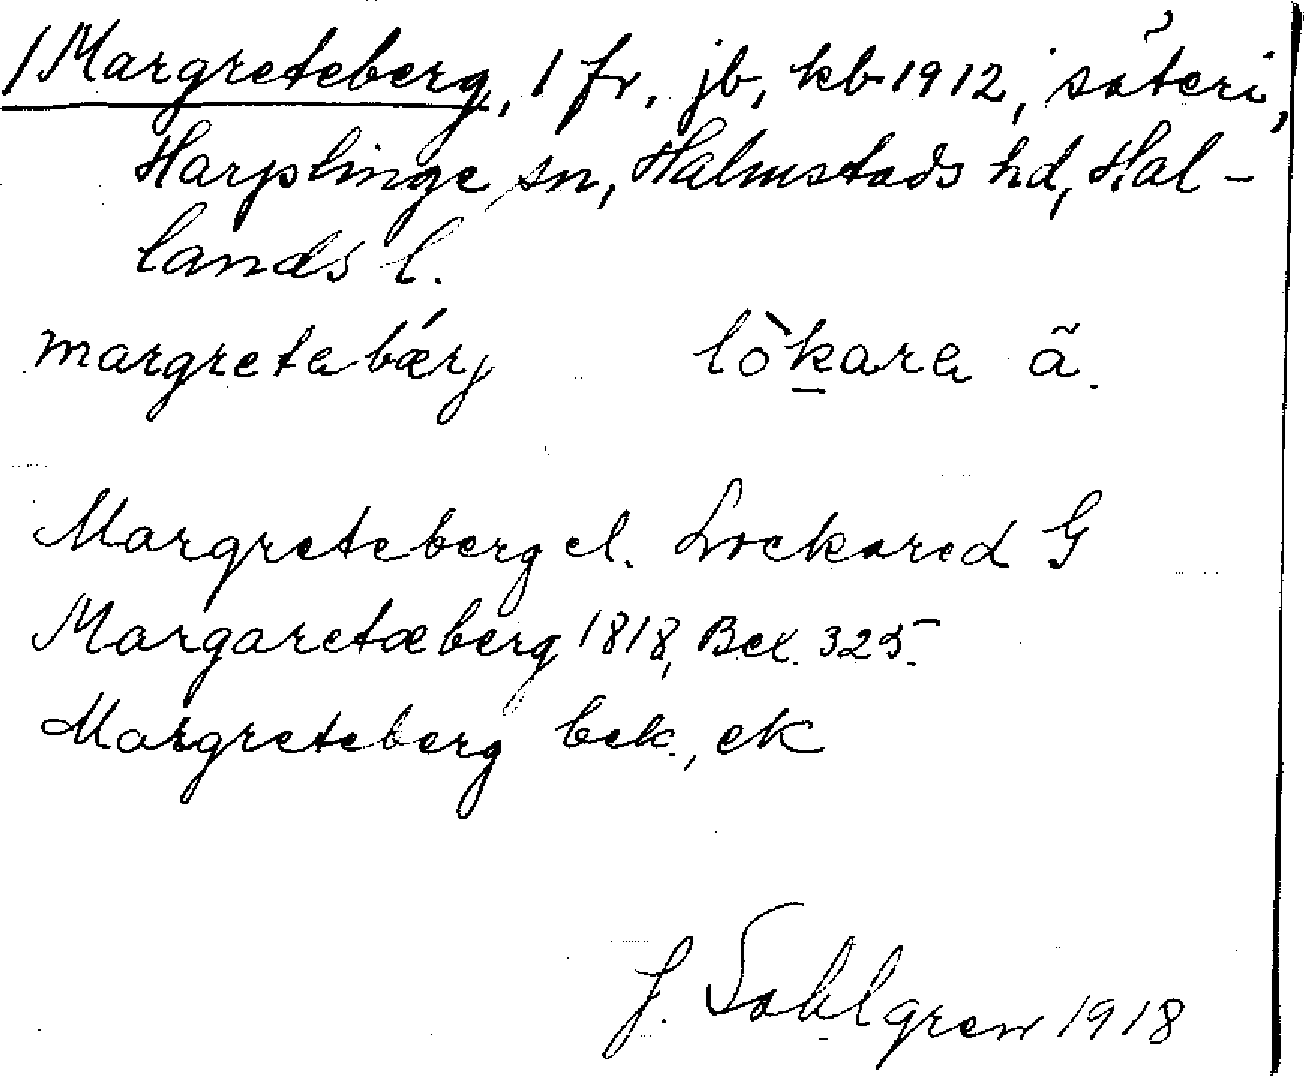 /Margreteberg, 1 fr. jb, kb 1912, säteri,
Harplinge sn, Halmstads hd, Hal-
lands l.
margretabǽrj lòkara ã.
Margreteberg el. Lockared G
Margaretæberg 1818, Bex. 325.
Margreteberg bek., ek
J. Sahlgren 1918